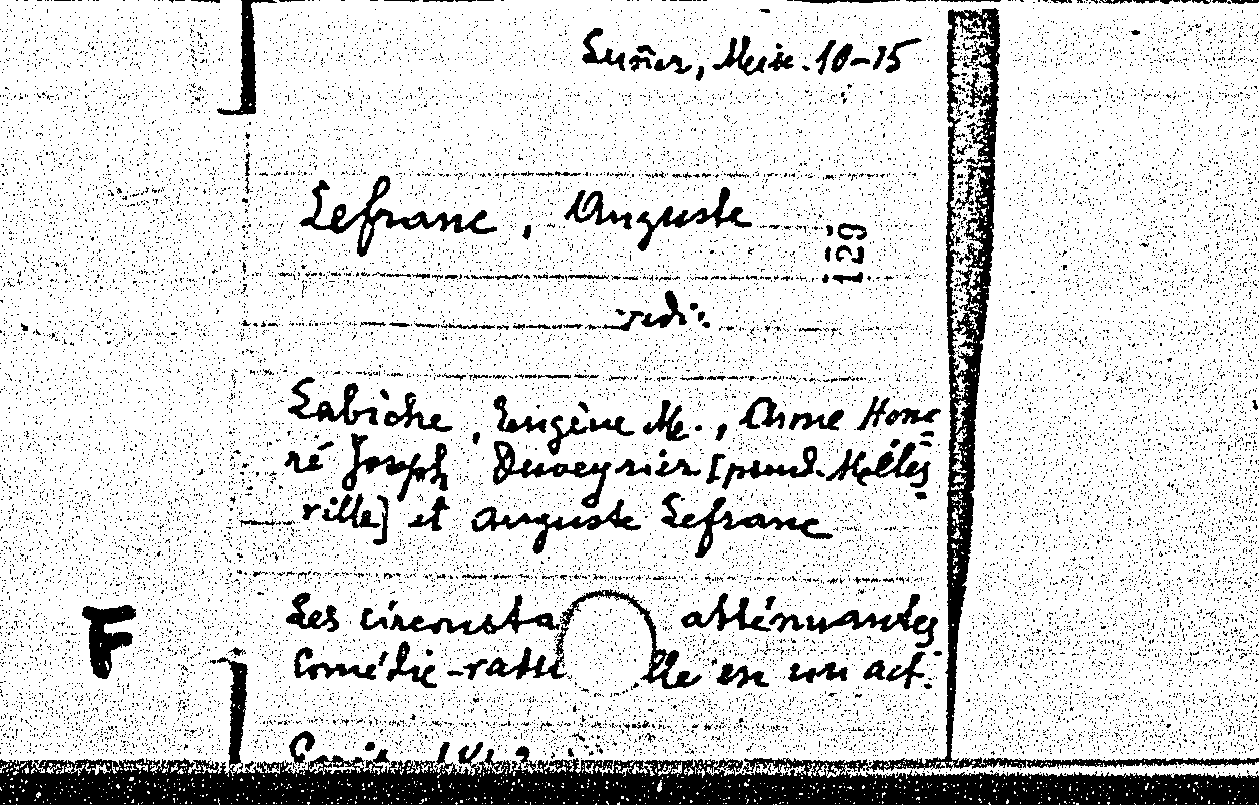 Suñer, Misc. 10-15
Lefranc, Auguste
129
redi.
Labiche, Eugène M., Anne Hono=
ré Joseph Duveyrier [pseud. Méles=
ville] et Auguste Lefranc
Les circonsta atténuantes
F
Comédie-
lle en un act.